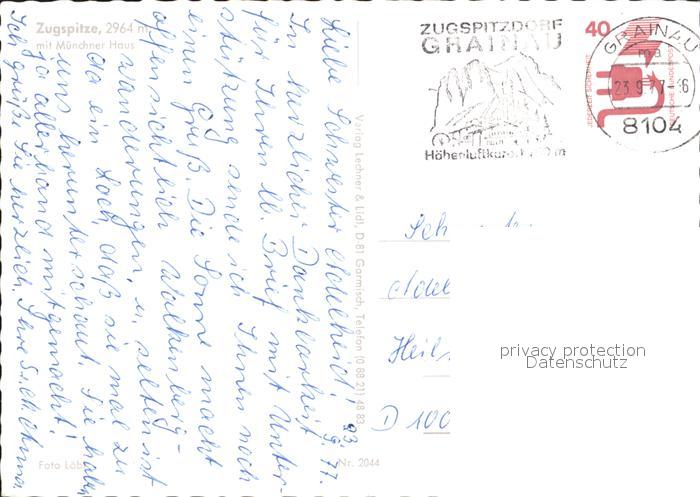 Zugspitze, 2964 m
mit Münchner Haus
ZUGSPITZDORF
GRAINAU
Höhenluftkurort
40
GRAINAU
23.9.77-16
8104
DEUTSCHE BUNDESPOST
Verlag Lechner & Lidl, D-81 Garmisch, Telefon (0 88 21) 48 83
23.9.77.
Liebe Schwester Adelheid!
In herzlicher Dankbarkeit
für Ihren lb. Brief mit Unter-
stützung sende ich Ihnen noch
einen Gruß. Die Sonne macht
offensichtlich Wolkenberg-
wanderungen, u. selten ist
da ein Loch, daß sie mal zu
uns herunterschaut. Sie haben
ja allerhand mitgemacht!
Ich grüße Sie herzlich, Ihre
Sch
Adel
Heil
D 100
privacy protection
Datenschutz
Foto Löb
Nr. 2044